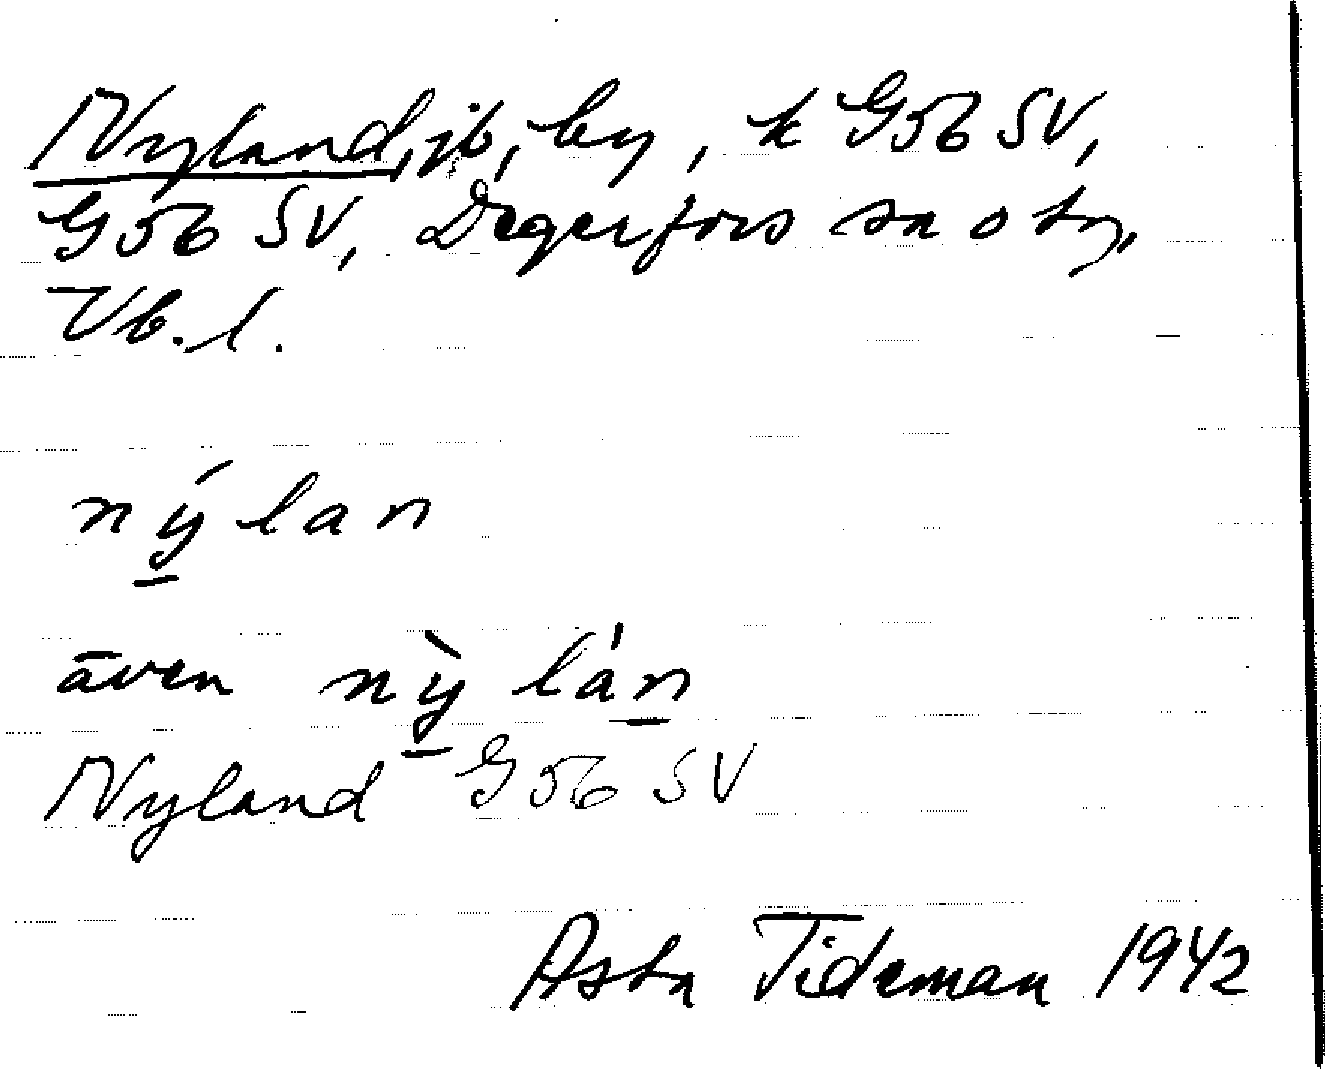 Nyland, jb, by, k G56 SV,
G56 SV, Degerfors sn o tg,
Vb. l.
nýlan
även nỳ lán
Nyland G56 SV
Asta Tideman 1942